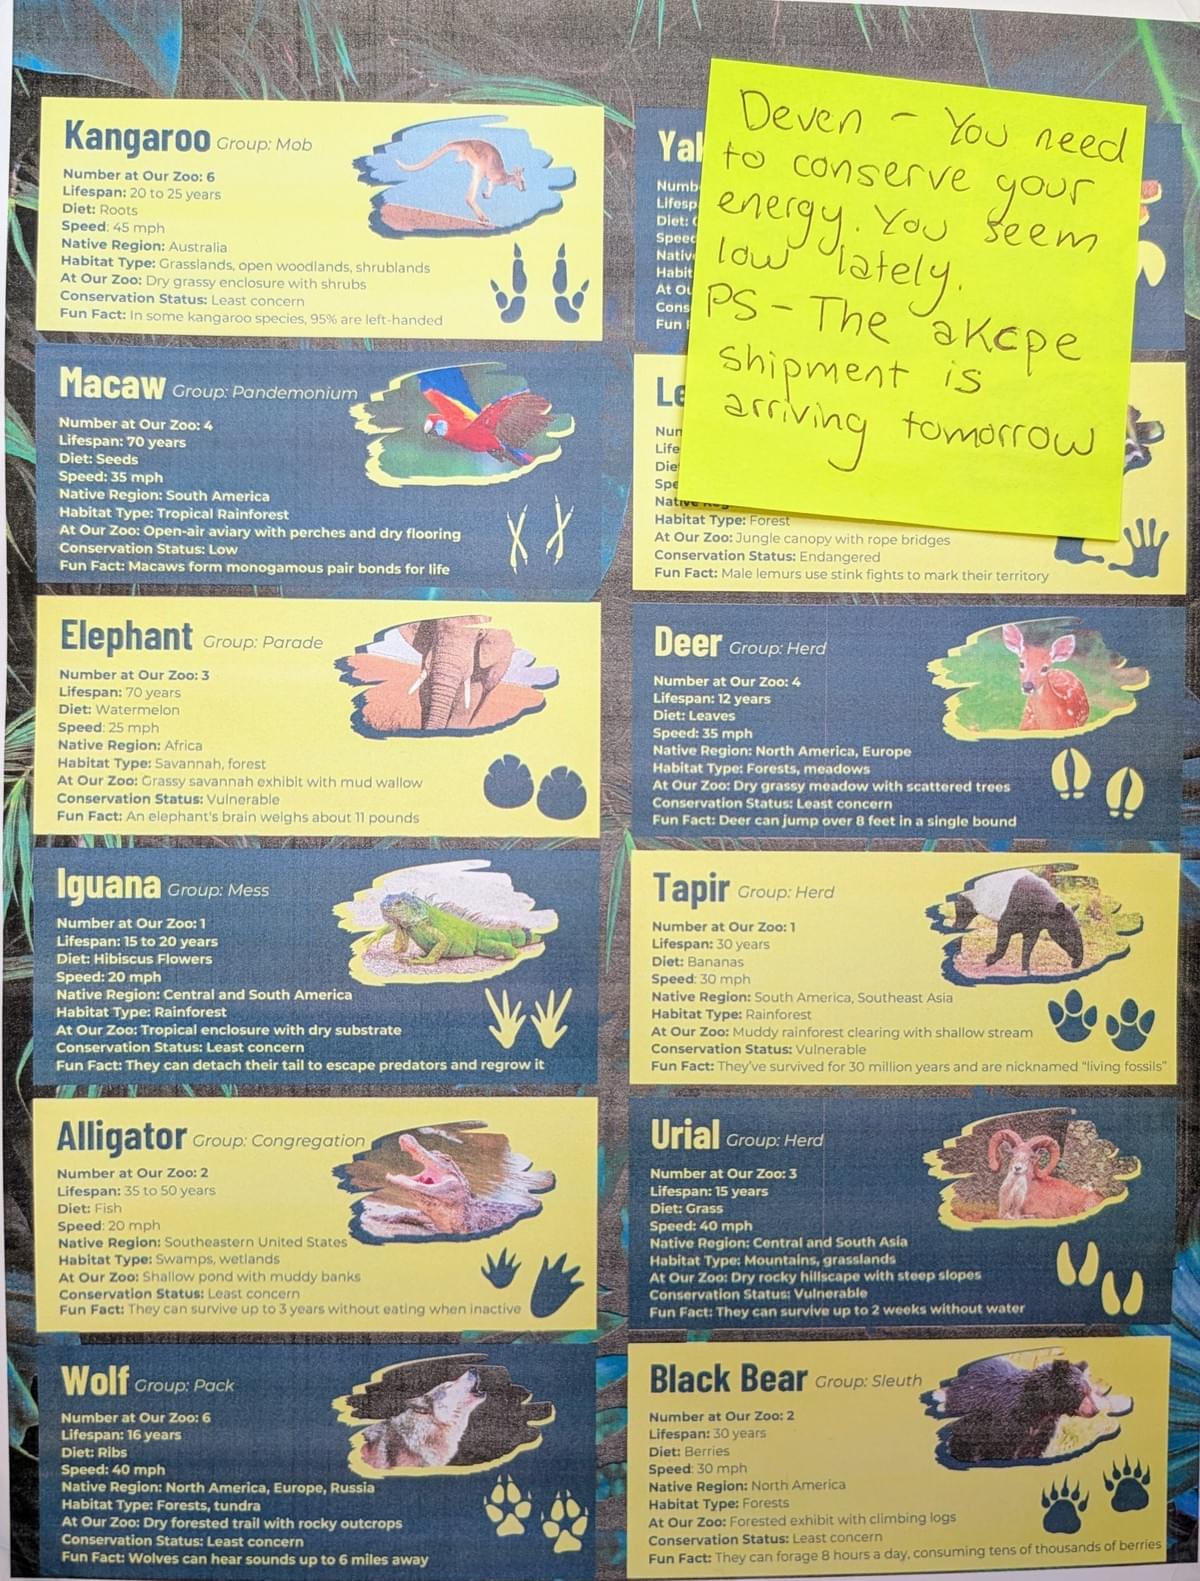 Kangaroo Group: Mob
Number at Our Zoo: 6
Lifespan: 20 to 25 years
Diet: Roots
Speed: 45 mph
Native Region: Australia
Habitat Type: Grasslands, open woodlands, shrublands
At Our Zoo: Dry grassy enclosure with shrubs
Conservation Status: Least concern
Fun Fact: In some kangaroo species, 95% are left-handed
Macaw Group: Pandemonium
Number at Our Zoo: 4
Lifespan: 70 years
Diet: Seeds
Speed: 35 mph
Native Region: South America
Habitat Type: Tropical Rainforest
At Our Zoo: Open-air aviary with perches and dry flooring
Conservation Status: Low
Fun Fact: Macaws form monogamous pair bonds for life
Elephant Group: Parade
Number at Our Zoo: 3
Lifespan: 70 years
Diet: Watermelon
Speed: 25 mph
Native Region: Africa
Habitat Type: Savannah, forest
At Our Zoo: Grassy savannah exhibit with mud wallow
Conservation Status: Vulnerable
Fun Fact: An elephant's brain weighs about 11 pounds
Iguana Group: Mess
Number at Our Zoo: 1
Lifespan: 15 to 20 years
Diet: Hibiscus Flowers
Speed: 20 mph
Native Region: Central and South America
Habitat Type: Rainforest
At Our Zoo: Tropical enclosure with dry substrate
Conservation Status: Least concern
Fun Fact: They can detach their tail to escape predators and regrow it
Alligator Group: Congregation
Number at Our Zoo: 2
Lifespan: 35 to 50 years
Diet: Fish
Speed: 20 mph
Native Region: Southeastern United States
Habitat Type: Swamps, wetlands
At Our Zoo: Shallow pond with muddy banks
Conservation Status: Least concern
Fun Fact: They can survive up to 3 years without eating when inactive
Wolf Group: Pack
Number at Our Zoo: 6
Lifespan: 16 years
Diet: Ribs
Speed: 40 mph
Native Region: North America, Europe, Russia
Habitat Type: Forests, tundra
At Our Zoo: Dry forested trail with rocky outcrops
Conservation Status: Least concern
Fun Fact: Wolves can hear sounds up to 6 miles away
Deven - You need
to conserve your
energy. You seem
low lately.
PS - The akcpe
shipment is
arriving tomorrow
Habitat Type: Forest
At Our Zoo: Jungle canopy with rope bridges
Conservation Status: Endangered
Fun Fact: Male lemurs use stink fights to mark their territory
Deer Group: Herd
Number at Our Zoo: 4
Lifespan: 12 years
Diet: Leaves
Speed: 35 mph
Native Region: North America, Europe
Habitat Type: Forests, meadows
At Our Zoo: Dry grassy meadow with scattered trees
Conservation Status: Least concern
Fun Fact: Deer can jump over 8 feet in a single bound
Tapir Group: Herd
Number at Our Zoo: 1
Lifespan: 30 years
Diet: Bananas
Speed: 30 mph
Native Region: South America, Southeast Asia
Habitat Type: Rainforest
At Our Zoo: Muddy rainforest clearing with shallow stream
Conservation Status: Vulnerable
Fun Fact: They've survived for 30 million years and are nicknamed "living fossils"
Urial Group: Herd
Number at Our Zoo: 3
Lifespan: 15 years
Diet: Grass
Speed: 40 mph
Native Region: Central and South Asia
Habitat Type: Mountains, grasslands
At Our Zoo: Dry rocky hillscape with steep slopes
Conservation Status: Vulnerable
Fun Fact: They can survive up to 2 weeks without water
Black Bear Group: Sleuth
Number at Our Zoo: 2
Lifespan: 30 years
Diet: Berries
Speed: 30 mph
Native Region: North America
Habitat Type: Forests
At Our Zoo: Forested exhibit with climbing logs
Conservation Status: Least concern
Fun Fact: They can forage 8 hours a day, consuming tens of thousands of berries